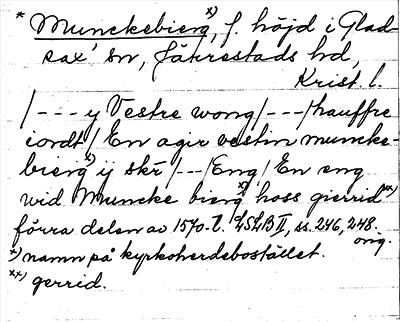 * Munckebierg x), f. höjd i Glad-
sax' sn, Järrestads hd,
Krist. l.
/--- y Vestre wong/---/hauffre
iordt/ En agir vestin muncke-
bierg x) ij skr/---/Eng/ En eng
wid Muncke bierg x) hoss gierrid xx)
förra delen av 1570-t. LSLB II, ss. 246, 248.
orig.
x) namn på kyrkoherdebostället.
xx) gerrid.